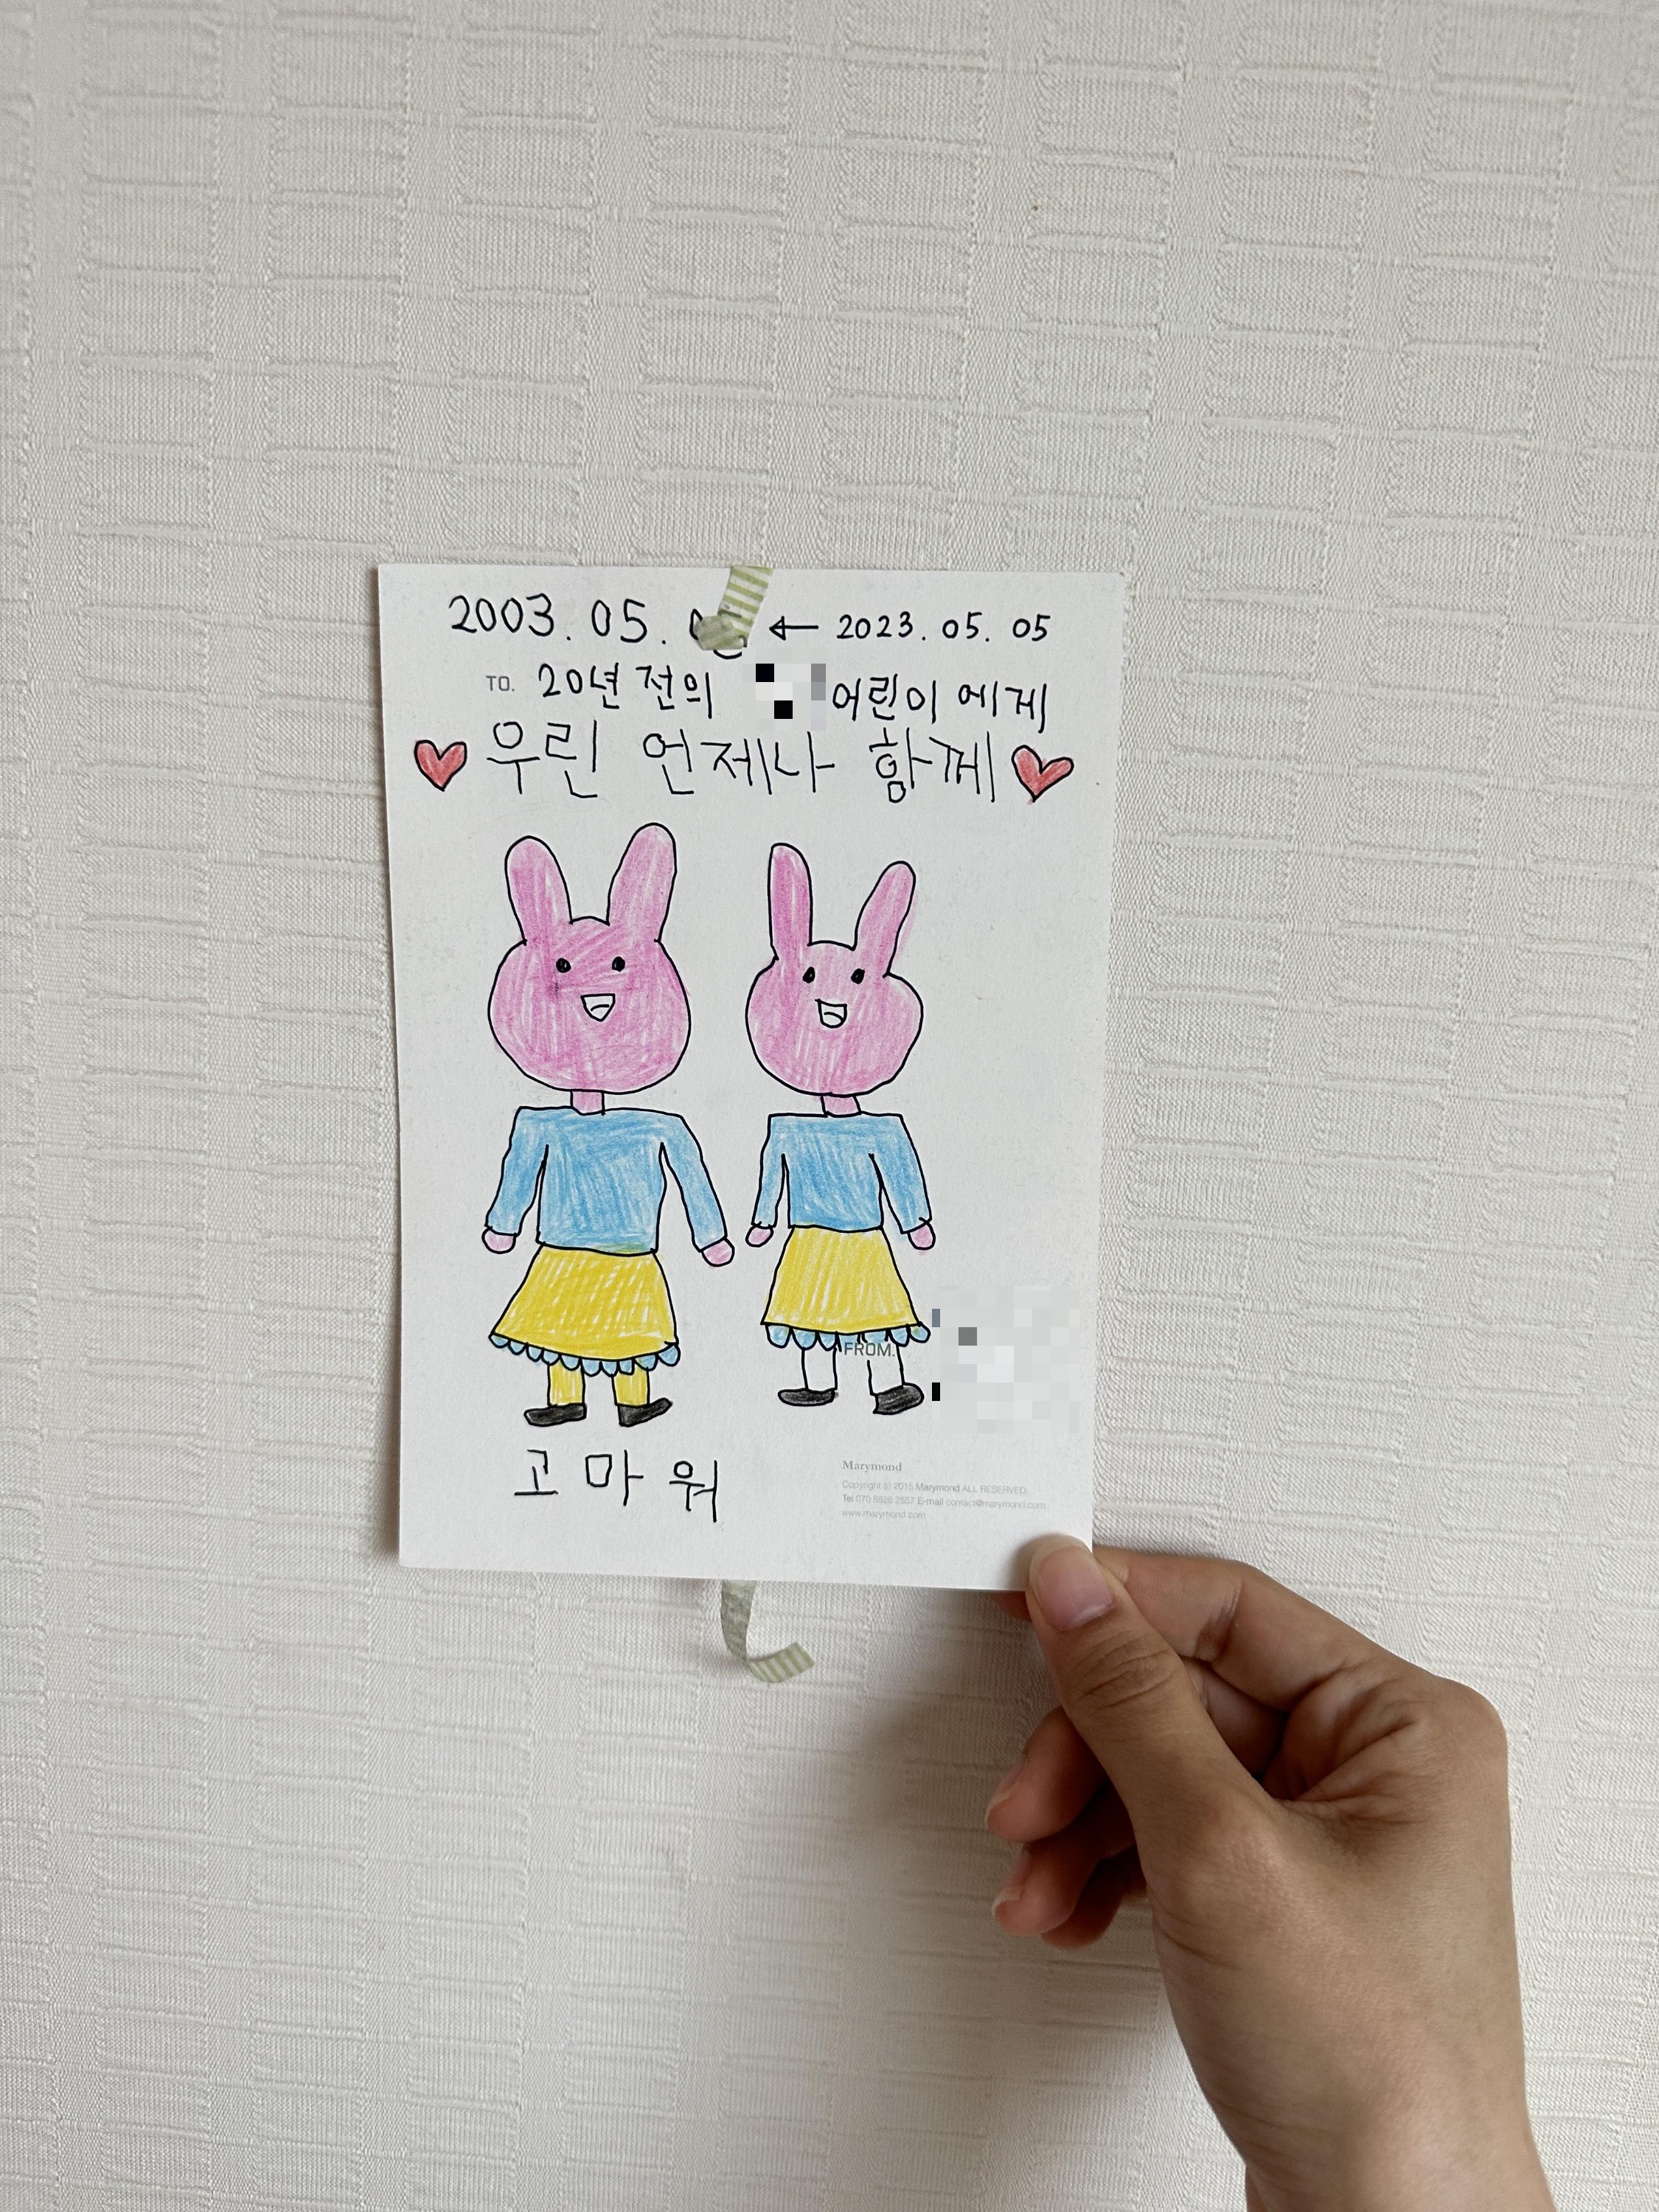 2003. 05. ← 2023. 05. 05
TO. 20년 전의 어린이 에게
우린 언제나 함께
FROM.
고마워
Marymond
Copyright ⓒ 2015 Marymond ALL RESERVED.
Tel 070 8826 2557 E-mail contact@marymond.com
www.marymond.com